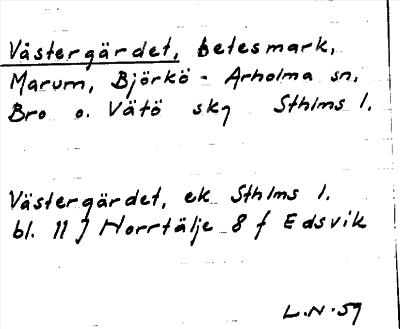 Västergärdet, betesmark,
Marum, Björkö - Arholma sn,
Bro o. Vätö skg Sthlms l.
Västergärdet, ek Sthlms l.
bl. 11 J Norrtälje 8 f Edsvik
L.N. 59